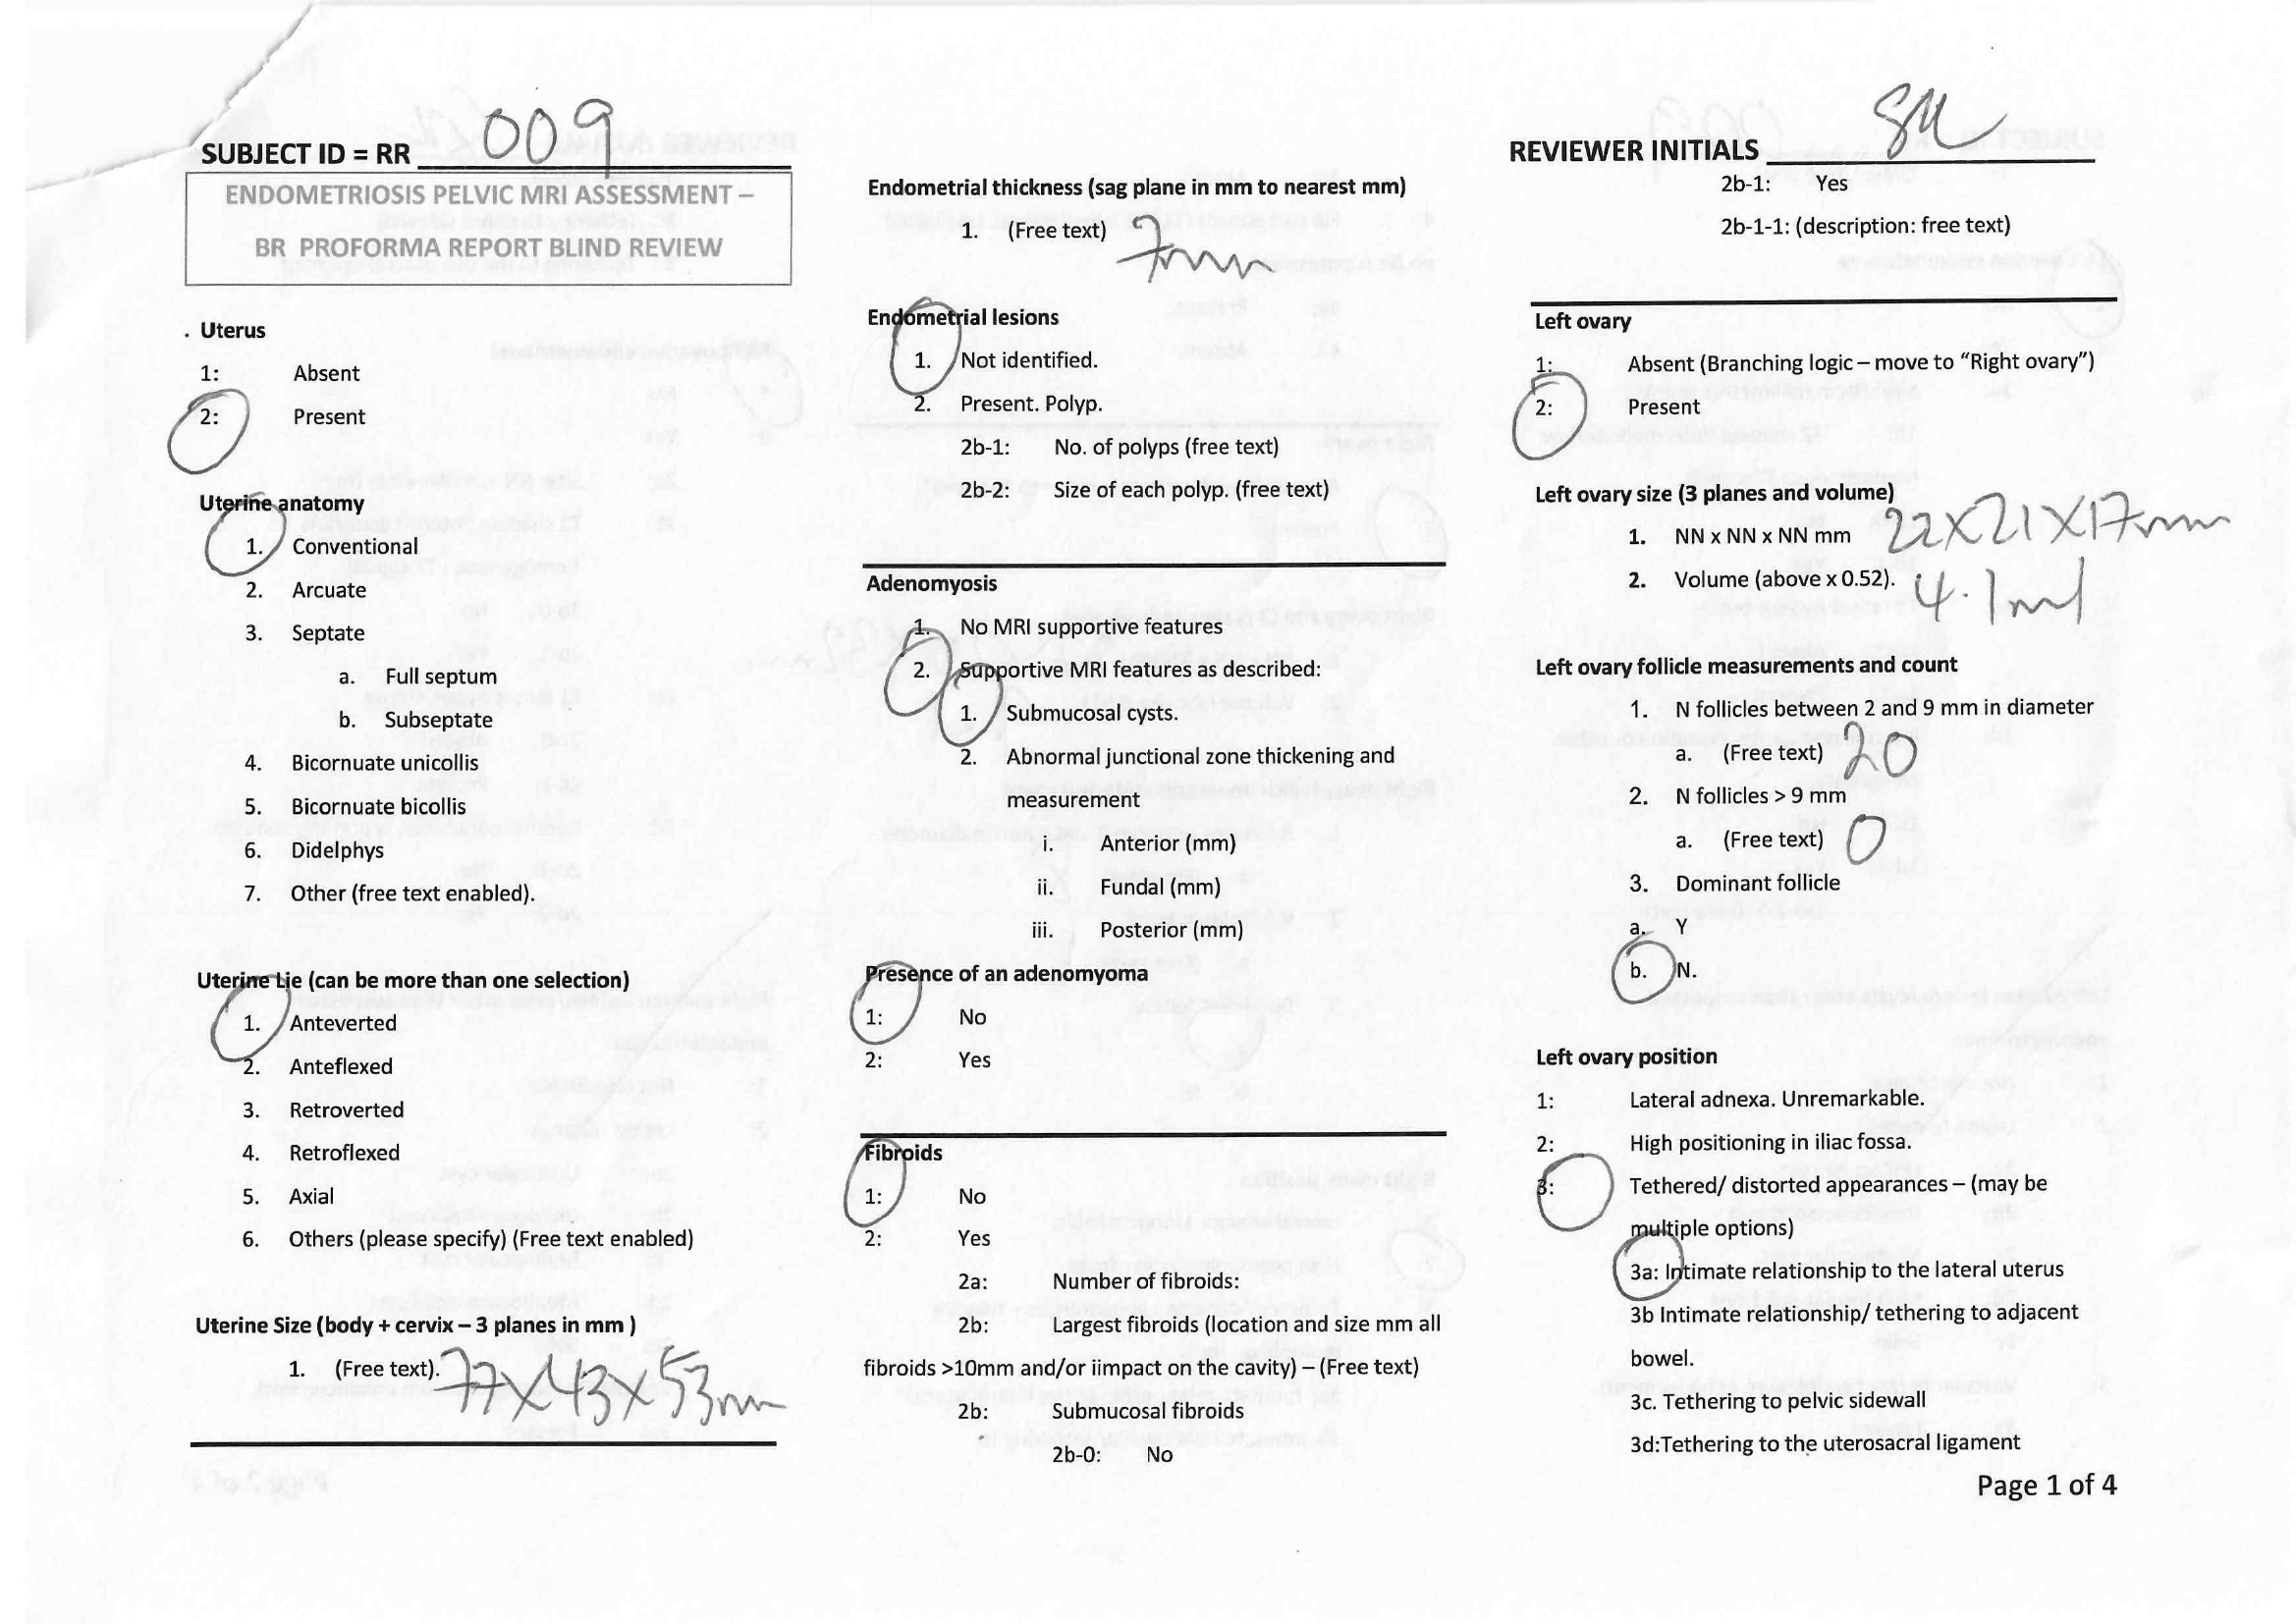 SUBJECT ID = RR 009
ENDOMETRIOSIS PELVIC MRI ASSESSMENT –
BR PROFORMA REPORT BLIND REVIEW
Uterus
1: Absent
2: Present
Uterine anatomy
1. Conventional
2. Arcuate
3. Septate
a. Full septum
b. Subseptate
4. Bicornuate unicollis
5. Bicornuate bicollis
6. Didelphys
7. Other (free text enabled).
Uterine Lie (can be more than one selection)
1. Anteverted
2. Anteflexed
3. Retroverted
4. Retroflexed
5. Axial
6. Others (please specify) (Free text enabled)
Uterine Size (body + cervix – 3 planes in mm )
1. (Free text). 77x43x53mm
Endometrial thickness (sag plane in mm to nearest mm)
1. (Free text) 7mm
Endometrial lesions
1. Not identified.
2. Present. Polyp.
2b-1: No. of polyps (free text)
2b-2: Size of each polyp. (free text)
Adenomyosis
1. No MRI supportive features
2. Supportive MRI features as described:
1. Submucosal cysts.
2. Abnormal junctional zone thickening and
measurement
i. Anterior (mm)
ii. Fundal (mm)
iii. Posterior (mm)
Presence of an adenomyoma
1: No
2: Yes
Fibroids
1: No
2: Yes
2a: Number of fibroids:
2b: Largest fibroids (location and size mm all
fibroids >10mm and/or iimpact on the cavity) – (Free text)
2b: Submucosal fibroids
2b-0: No
REVIEWER INITIALS SM
2b-1: Yes
2b-1-1: (description: free text)
Left ovary
1: Absent (Branching logic – move to “Right ovary”)
2: Present
Left ovary size (3 planes and volume)
1. NN x NN x NN mm 22x21x17mm
2. Volume (above x 0.52). 4.1ml
Left ovary follicle measurements and count
1. N follicles between 2 and 9 mm in diameter
a. (Free text) 20
2. N follicles > 9 mm
a. (Free text) 0
3. Dominant follicle
a. Y
b. N.
Left ovary position
1: Lateral adnexa. Unremarkable.
2: High positioning in iliac fossa.
3: Tethered/ distorted appearances – (may be
multiple options)
3a: Intimate relationship to the lateral uterus
3b Intimate relationship/ tethering to adjacent
bowel.
3c. Tethering to pelvic sidewall
3d:Tethering to the uterosacral ligament
Page 1 of 4